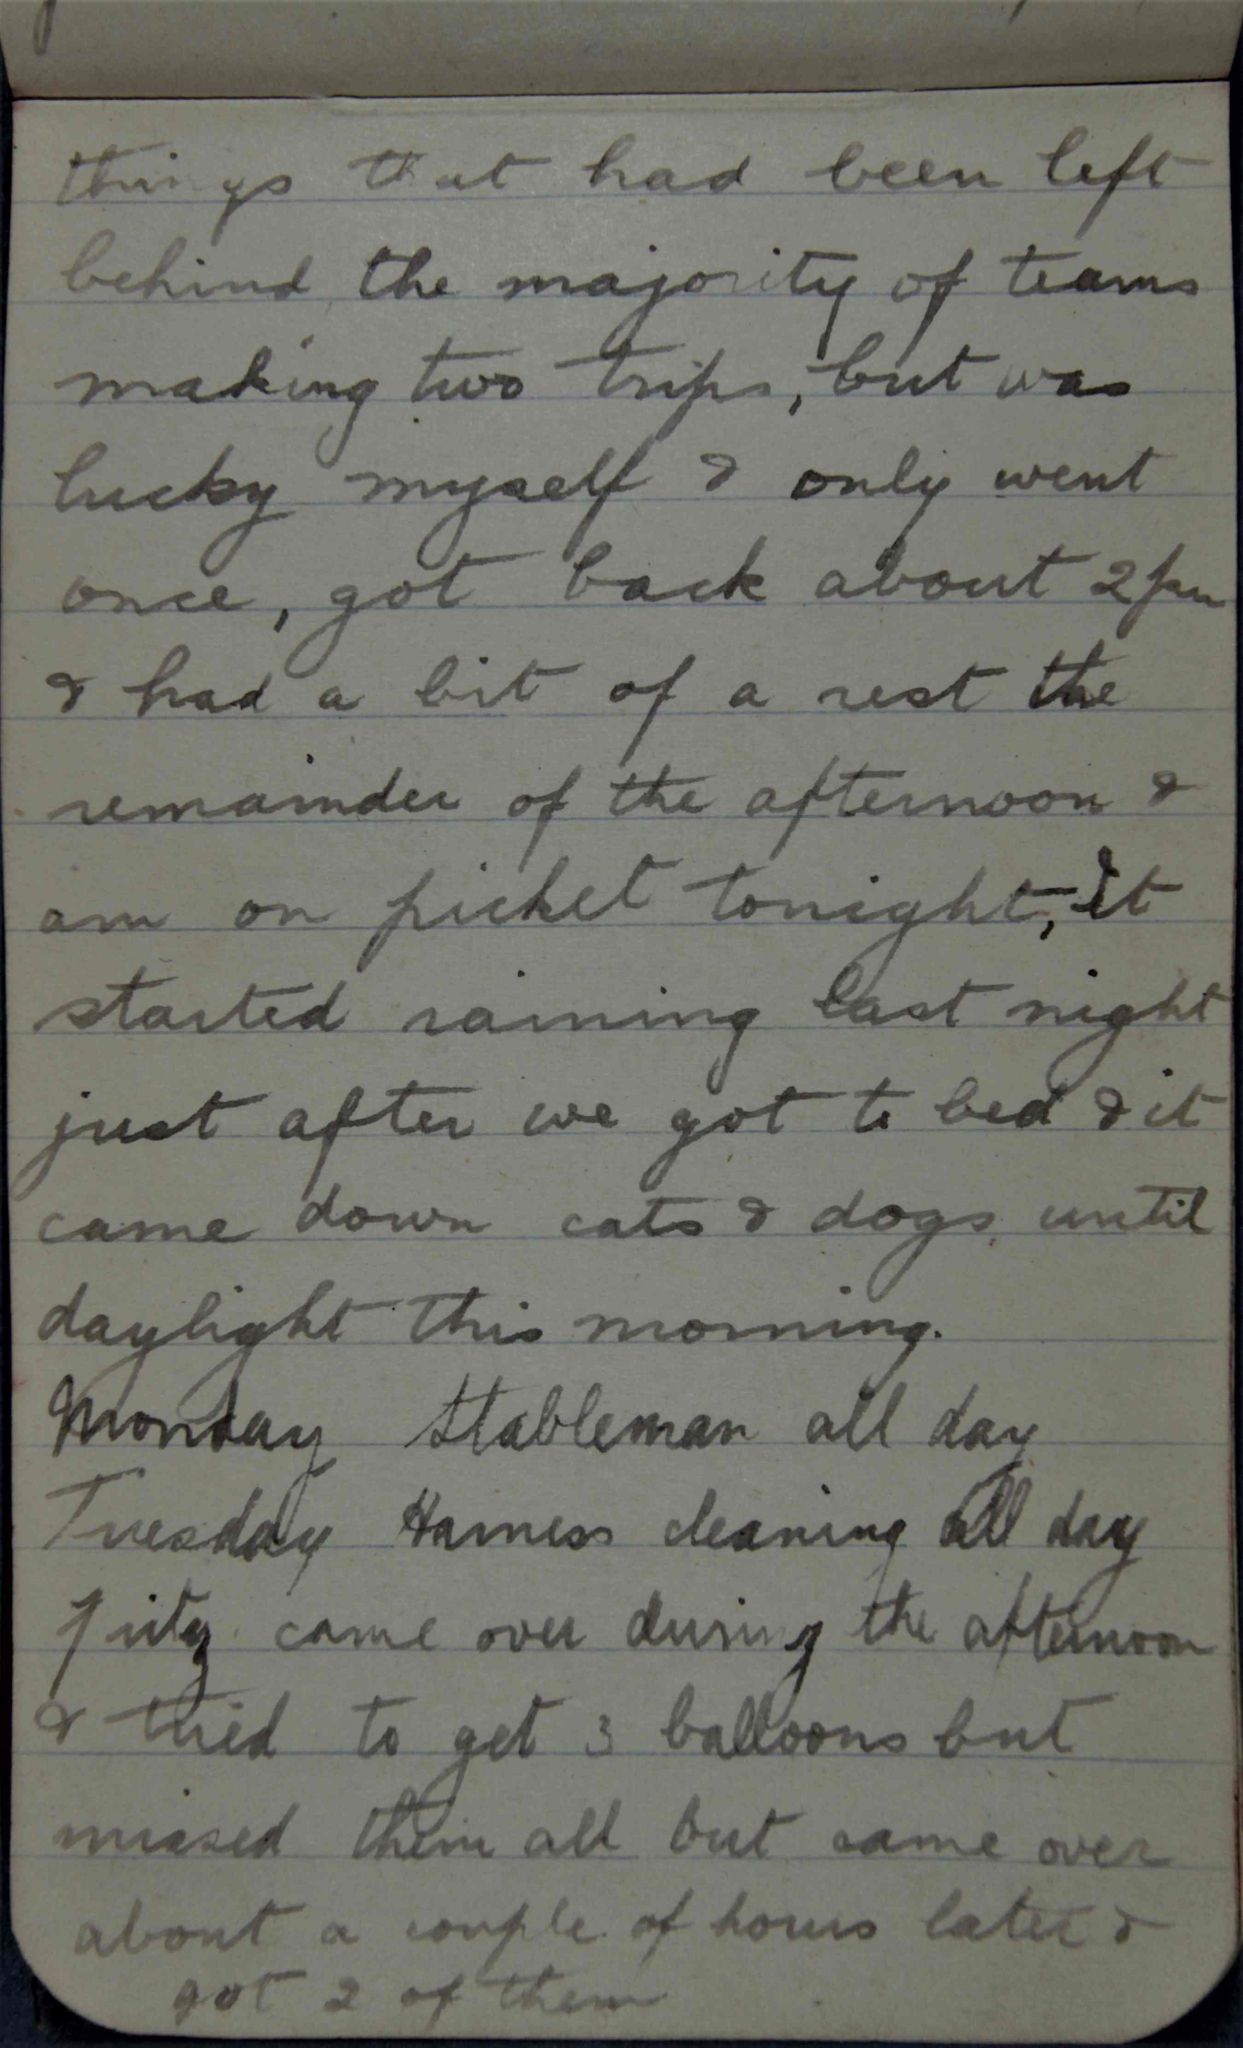 things that had been left
behind the majority of teams
making two trips, but was
lucky myself & only went
once, got back about 2 pm
& had a bit of a rest the
remainder of the afternoon &
am on picket tonight, It
started raining last night
just after we got to bed & it
came down cats & dogs until
daylight this morning.
Monday Stableman all day
Tuesday Harness cleaning all day
Fritz came over during the afternoon
& tried to get 3 balloons but
missed them all but came over
about a couple of hours later &
got 2 of them